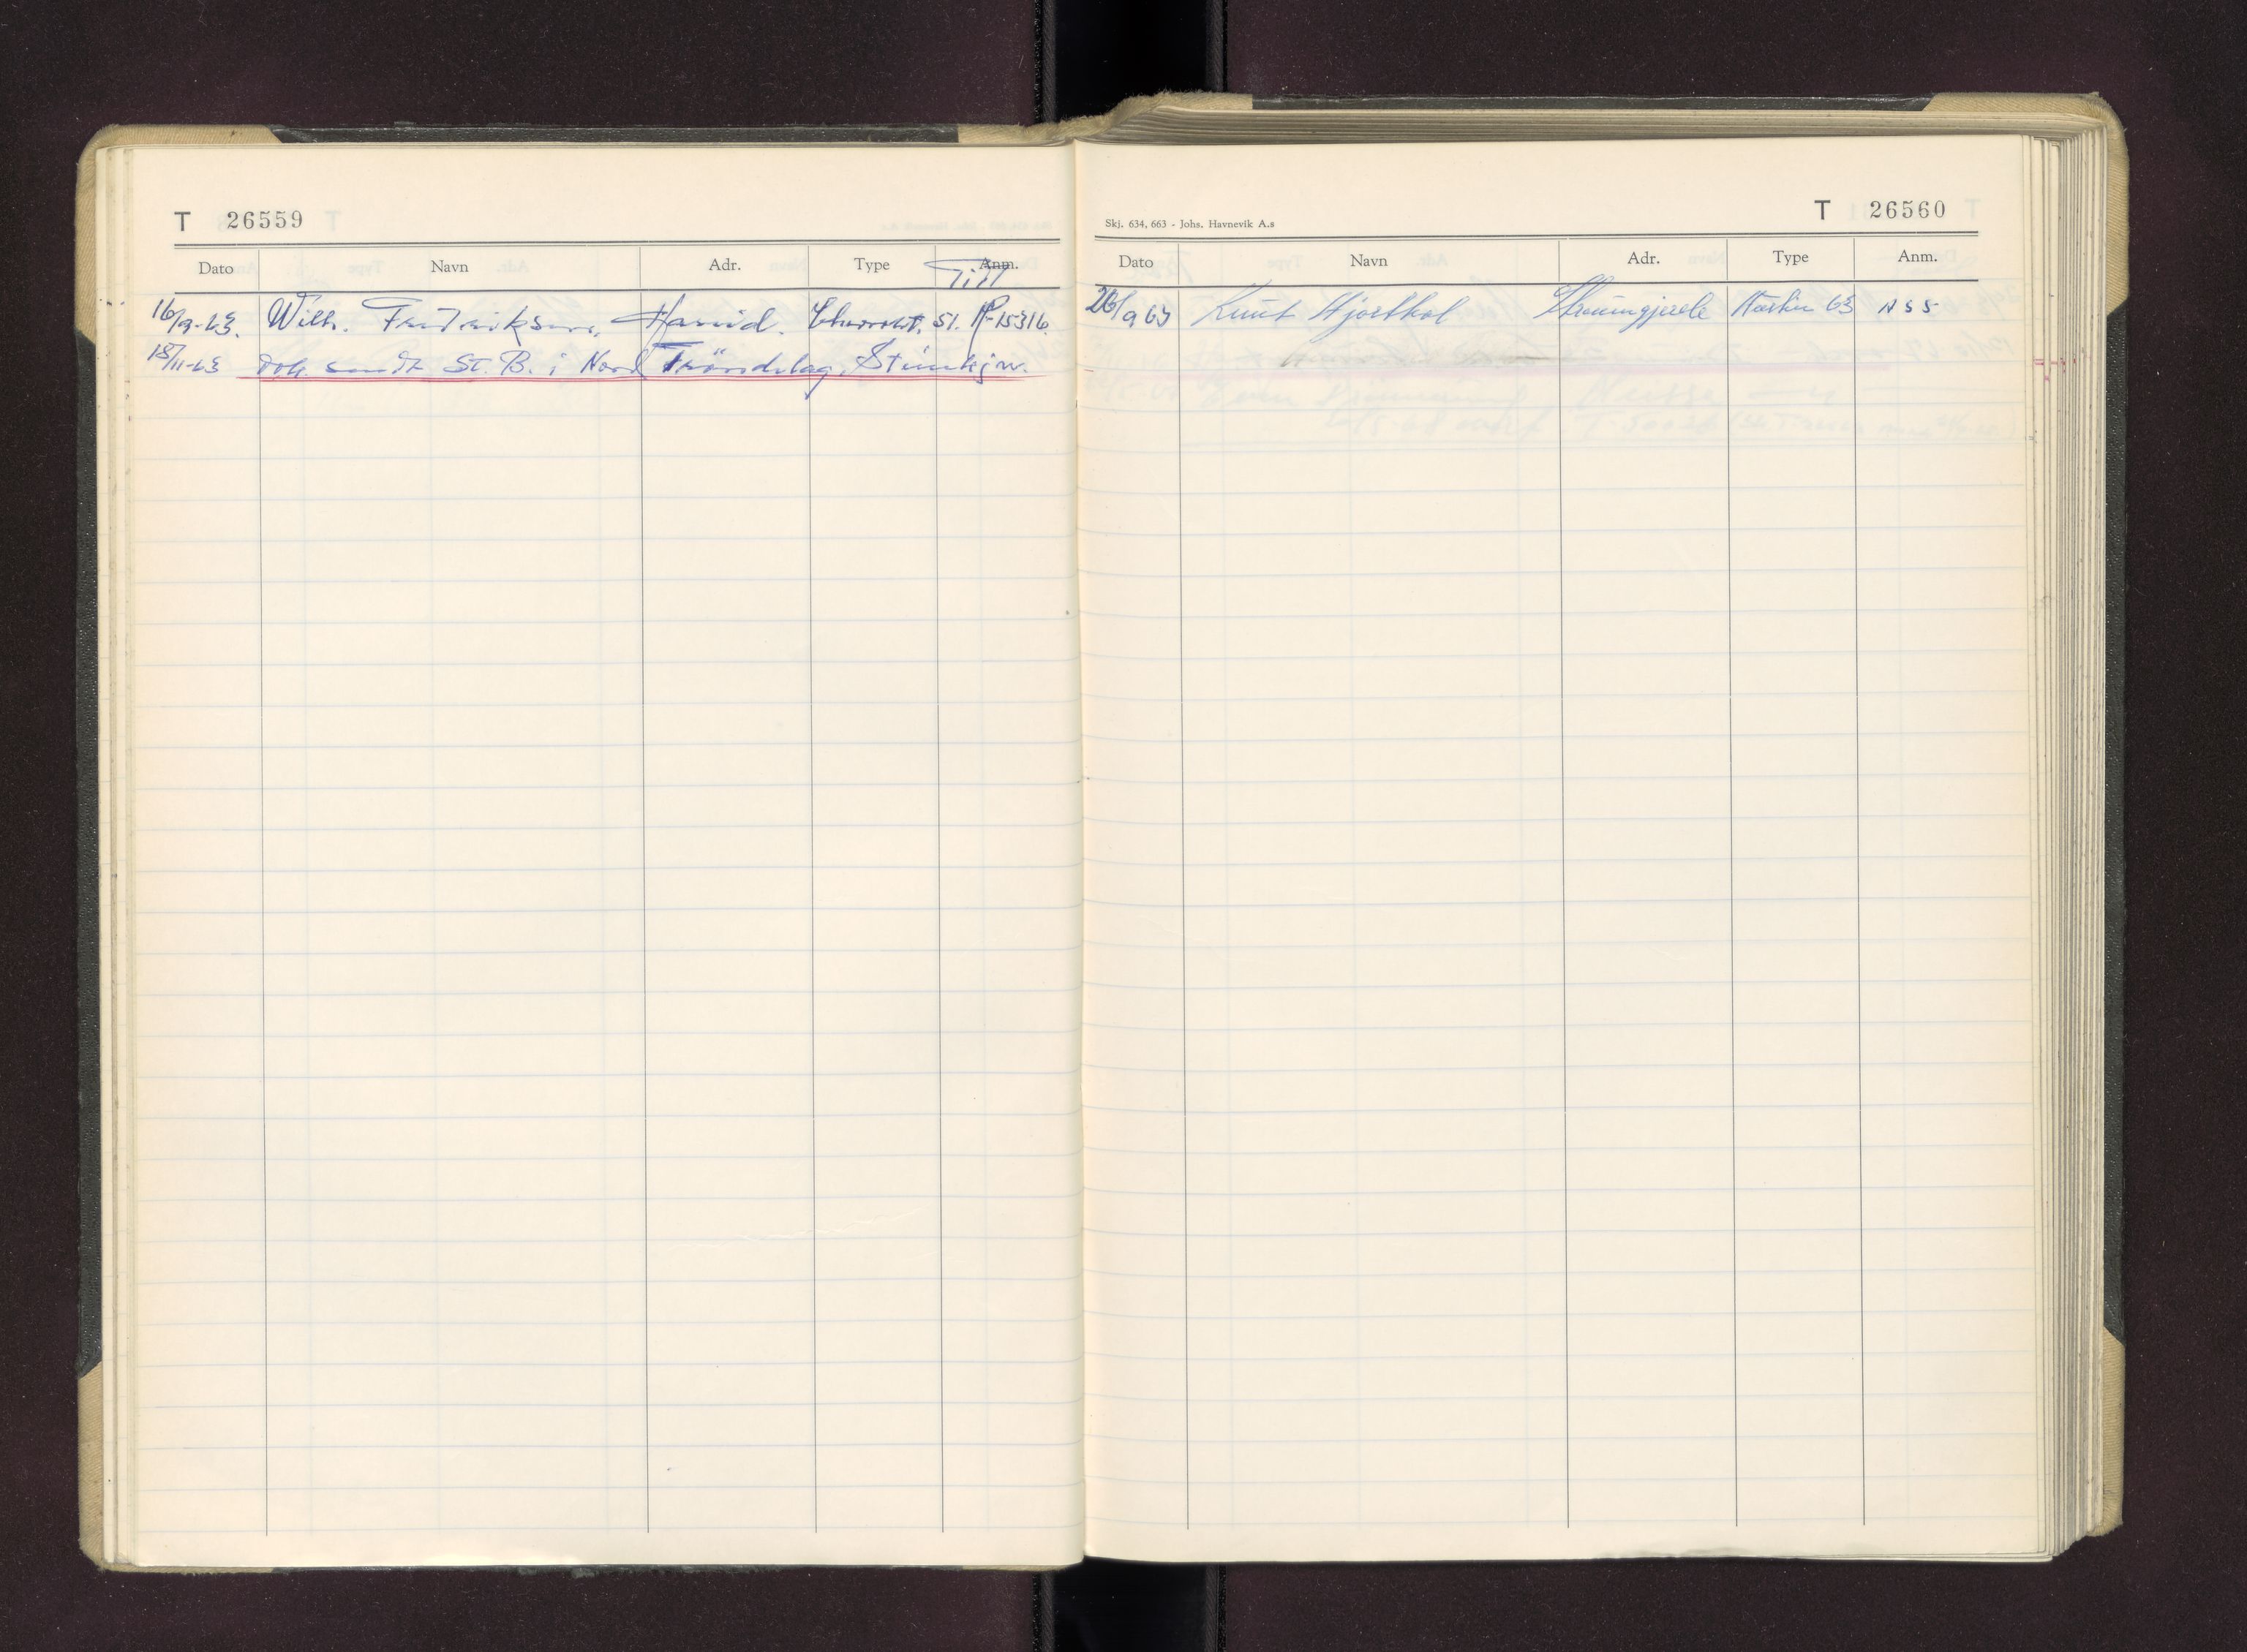 T 26559
Dato Navn Adr. Type Anm.
Till
16/9-63. Wilh. Fredriksen, Hareid. Chevrolet. 51. P-15316.
18/11-63 Dok. sendt St. B. i Nord Tröndelag, Steinkjer.
Skj. 634, 663 - Johs. Havnevik A.s
T 26560
Dato Navn Adr. Type Anm.
26/9 63 Knut Hjorthol Austin 63 A 55